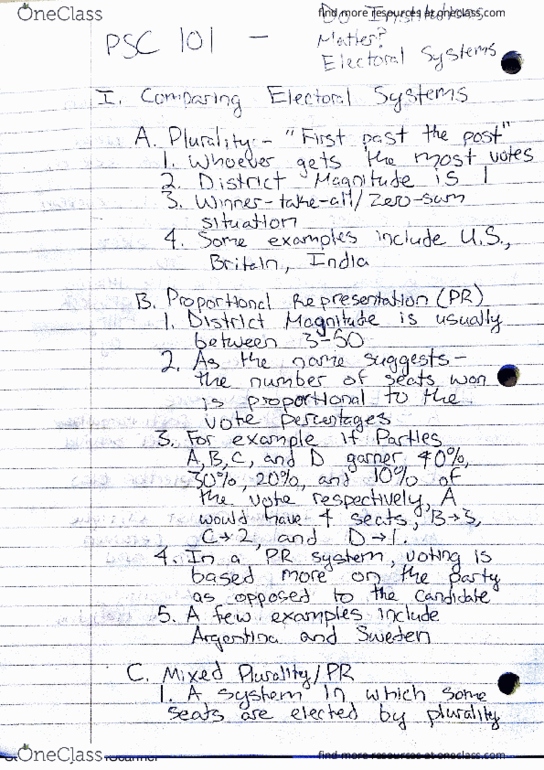 OneClass
find more resources at oneclass.com
Do Institutions
PSC 101 -
Matter?
Electoral Systems
I. Comparing Electoral Systems
A. Plurality - "First past the post"
1. Whoever gets the most votes
2. District Magnitude is 1
3. Winner-take-all/zero-sum
situation
4. Some examples include U.S.,
Britain, India
B. Proportional Representation (PR)
1. District Magnitude is usually
between 3-50
2. As the name suggests-
the number of seats won
is proportional to the
vote percentages
3. For example if Parties
A, B, C, and D garner 40%,
30%, 20%, and 10% of
the vote respectively, A
would have 4 seats, B→3,
C→2, and D→1.
4. In a PR system, voting is
based more on the party
as opposed to the candidate
5. A few examples include
Argentina and Sweden
C. Mixed Plurality/PR
1. A system in which some
seats are elected by plurality
OneClass
find more resources at oneclass.com